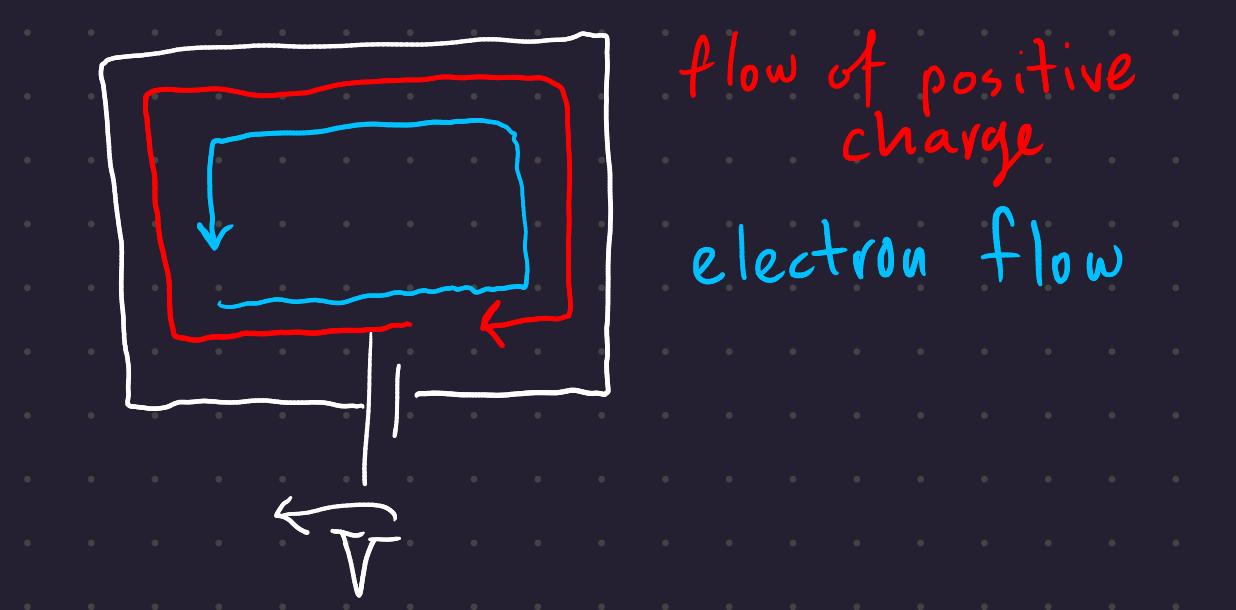 flow of positive
charge
electron flow
V